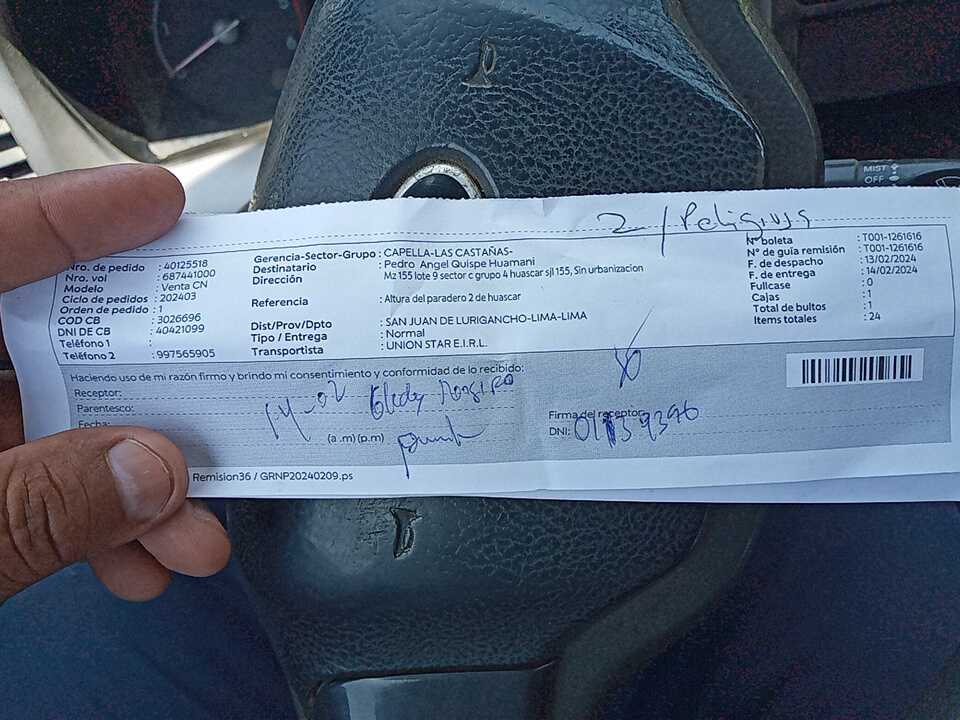 2 / Peligrosos
Nro. de pedido : 40125518
Nro. vol : 687441000
Modelo : Venta CN
Ciclo de pedidos : 202403
Orden de pedido : 1
COD CB : 3026696
DNI DE CB : 40421099
Teléfono 1 :
Teléfono 2 : 997565905
Gerencia-Sector-Grupo : CAPELLA-LAS CASTAÑAS-
Destinatario : Pedro Angel Quispe Huamani
Dirección : Mz 155 lote 9 sector c grupo 4 huascar sjl 155, Sin urbanizacion
Referencia : Altura del paradero 2 de huascar
Dist/Prov/Dpto : SAN JUAN DE LURIGANCHO-LIMA-LIMA
Tipo / Entrega : Normal
Transportista : UNION STAR E.I.R.L.
N° boleta : T001-1261616
N° de guía remisión : T001-1261616
F. de despacho : 13/02/2024
F. de entrega : 14/02/2024
Fullcase : 0
Cajas : 1
Total de bultos : 1
Items totales : 24
Haciendo uso de mi razón firmo y brindo mi consentimiento y conformidad de lo recibido:
Receptor:
Parentesco:
Fecha: 14-02
(a.m)(p.m)
Firma del receptor
DNI:
Remision36 / GRNP20240209.ps
MIST
OFF